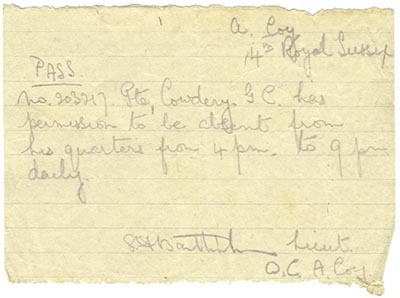 A. Coy
4th Royal Sussex
PASS.
No. 203217. Pte, Cowdery. G C. has
permission to be absent from
his quarters from 4 pm. to 9 pm
daily.
Lieut.
O.C. A. Coy.